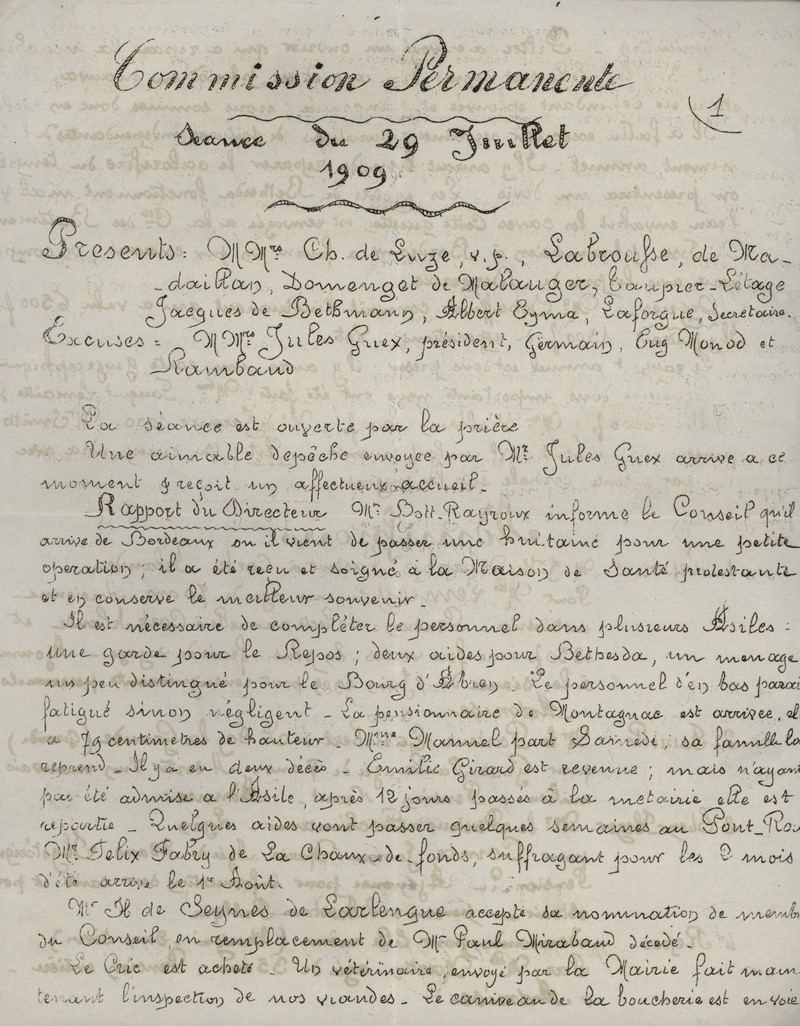 Commission Permanente
1
Séance du 29 Juillet
1909.
Présents: MMrs Ch. de Luze, v.p., Labrousse, de Ma-
-daillan, Domenget de Malauger, Coupier-Létage
Jacques de Bethmann, Albert Eyma, Laforgue, Secrétaire.
Excusés = MMrs Jules Guex, président, Germain, Eug Monod et
Rambaud
La séance est ouverte par la prière
Une aimable depêche envoyée par Mr Jules Guex arrive a ce
moment & reçoit un affectueux accueil.
Rapport du Directeur Mr Rayroux informe le Conseil qu'il
arrive de Bordeaux ou il vient de passer une huitaine pour une petite
operation; il a été reçu et soigné à la Maison de Santé protestante
et en conserve le meilleur souvenir.
Il est nécessaire de compléter le personnel dans plusieurs Asiles:
une garde pour le Repos; deux aides pour Bethesda, un menage
un peu distingué pour le Bourg d'Abren. Le personnel d'en bas parai
fatigué sinon négligent. La pensionnaire de Montagnac est arrivée, el
a 79 centimètres de hauteur. Mme Mannel part Samedi, sa famille la
reprend. Il y a eu deux décès. Emilie Girard est revenue; mais n'ayant
pas été admise a l'Asile, après 12 jours passés à la metairie elle est
repartie. Quelques aides vont passer quelques semaines au Pont-Ro
Mr Felix Fabry de La Chaux-de-fonds, suffragant pour les 2 mois
d'été arrive le 1er Août.
Mr H de Seynes de Larlengue accepte sa nomination de memb
du Conseil en remplacement de Mr Paul Mirabaud décédé.
Le Cric est acheté. Un vétérinaire, envoyé par la Mairie fait main
tenant l'inspection de nos viandes. Le caniveau de la boucherie est en voie